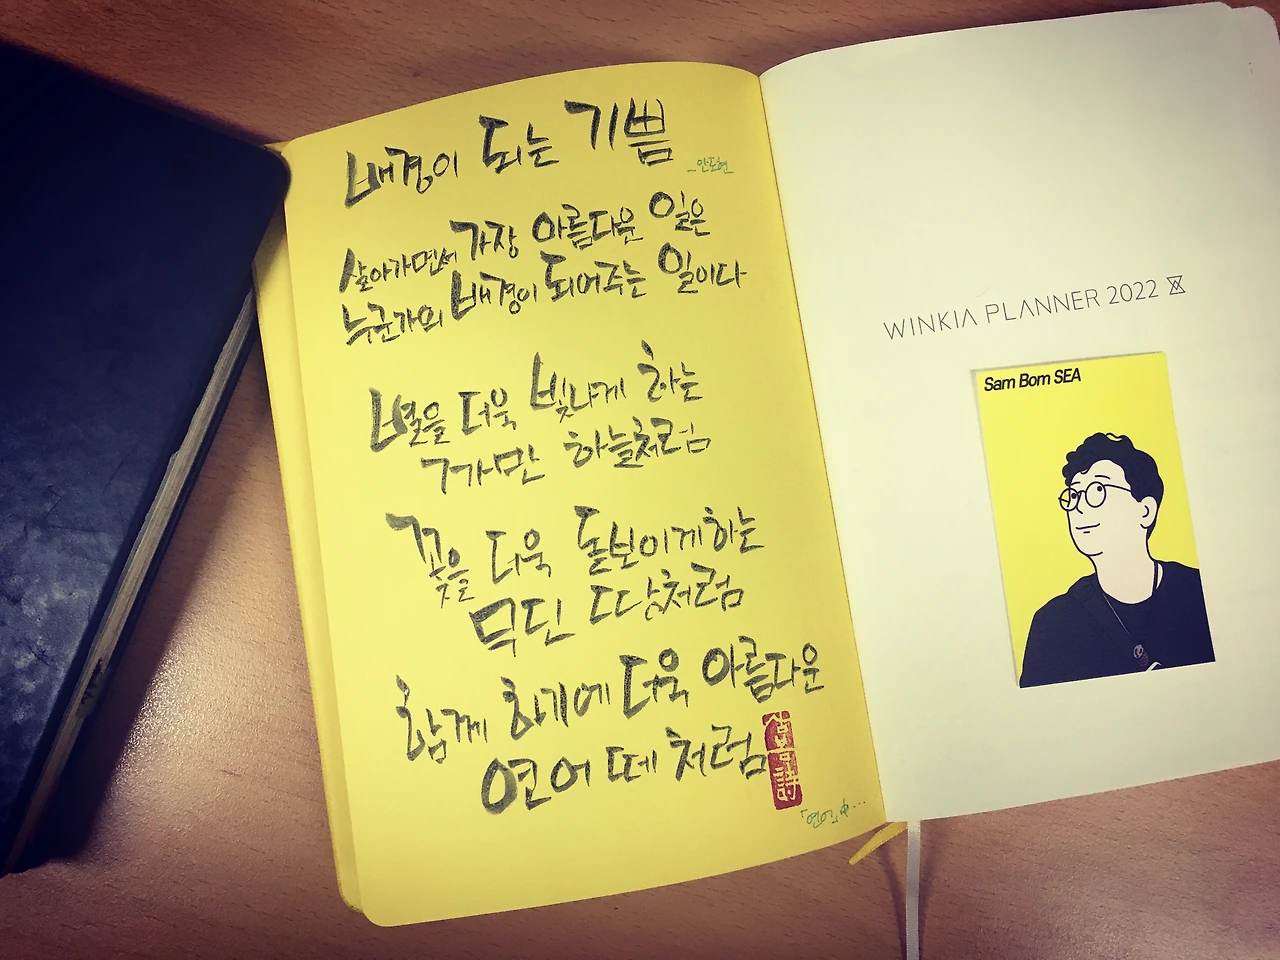 배경이 되는 기쁨
- 안도현
살아가면서 가장 아름다운 일은
누군가의 배경이 되어주는 일이다
별을 더욱 빛나게 하는
까만 하늘처럼
꽃을 더욱 돋보이게하는
무딘 땅처럼
함께 하기에 더욱 아름다운
연어 떼처럼
「연어」中...
WINKIA PLANNER 2022
Sam Bom SEA